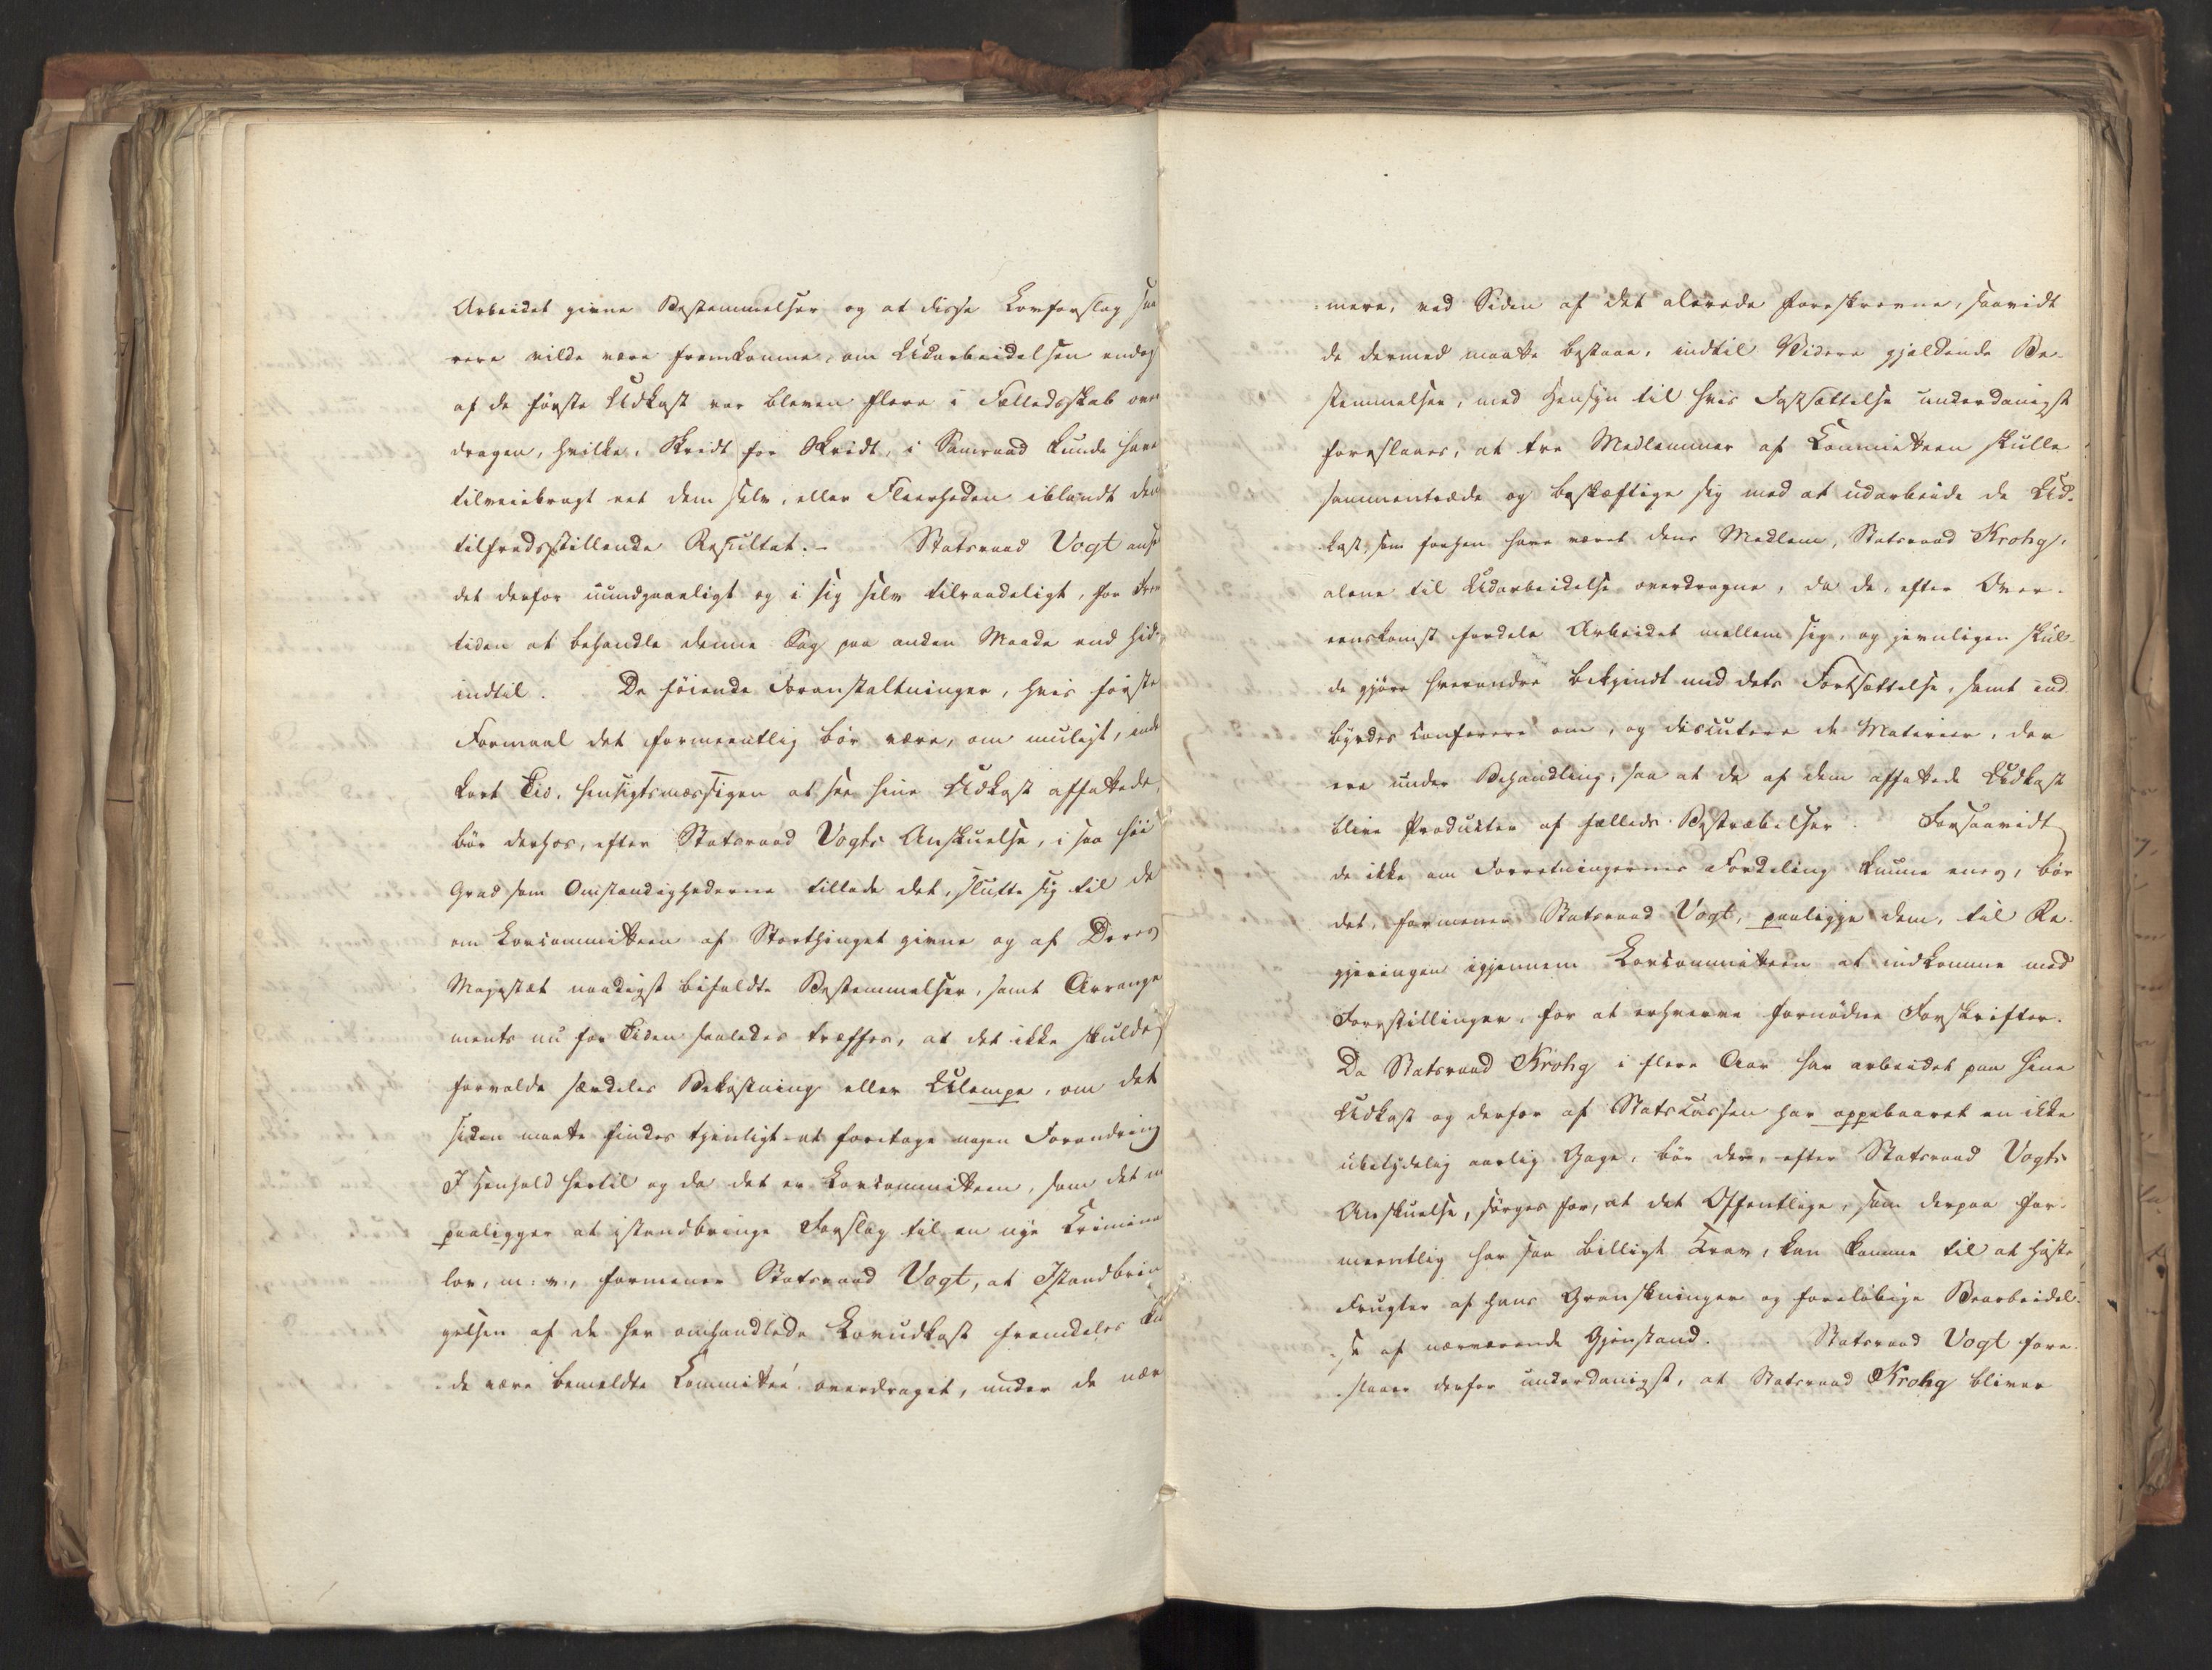 Arbeidet givne Bestemmelser og at disse Lovforslag sna
rere vilde være fremkomne, om Udarbeidelsen endog
af de første Udkast var bleven flere i Fælledsskab over
dragen, hvilke, Skridt for Skridt, i Samraad kunde have
tilveiebragt et dem selv, eller Fleerheden iblandt dem
tilfredsstillende Resultat.- Statsraad Vogt anse
det derfor uundgaaeligt og i sig selv tilraadeligt, for Frem
tiden at behandle denne Sag paa anden Maade end hid-
indtil. De føiende Foranstaltninger, hvis første
Formaal det formeentlig bør være, om muligt, inde
kort Tid, hensigtsmæssigen at see hine Udkast affattede,
bør derhos, efter Statsraad Vogts Anskuelse, i saa høi
Grad som Omstændighederne tillade det, slutte sig til de
om Lovcommitteen af Storthinget givne og af Deres
Majestæt naadigst bifaldte Bestemmelser, samt Arrange
ments nu for Tiden saaledes træffes, at det ikke skulde
forvolde særdeles Bekostning eller Ulempe, om det
siden maatte findes tjenligt at foretage nogen Forandring
I Henhold hertil og da det er Lovcommitteen, som det
paaligger at istandbringe Forslag til en nye Krimina
lov, m: v:, formener Statsraad Vogt, at Istandbrin
gelsen af de her omhandlede Lovudkast fremdeles
de være bemeldte Committee overdraget, under de nær
mere, ved Siden af det alerede foreskrevne, saavidt
de dermed maatte bestaae, indtil Videre gjeldende Be-
stemmelser, med Hensyn til hvis Fastsættelse underdanigst
foreslaaes, at tre Medlemmer af Committeen skulle
sammentræde og beskæftige sig med at udarbeide de Ud-
kast, som forhen have været dens Medlem, Statsraad Krohg,
alene til Udarbeidelse overdragne, da de, efter Over-
eenskomst fordele Arbeidet mellem sig, og jevnligen skul-
de gjøre hverandre bekjendt med dets Fortsættelse, samt ind-
byrdes conferere om, og discutere de Materier, der
ere under Behandling, saa at de af dem affattede Udkast
blive Producter af fælleds Bestræbelser. Forsaavidt
de ikke om Forretningernes Fordeling kunne enes, bør
det, formener Statsraad Vogt, paaligge dem, til Re-
gjeringen igjennem Lovcommitteen at indkomme med
Forestillinger, for at erhverve fornødne Forskrifter.
Da Statsraad Krohg i flere Aar har arbeidet paa hine
Udkast og derfor af Statscassen har oppebaaret en ikke
ubetydelig aarlig Gage, bør der, efter Statsraad Vogts
Anskuelse, sørges for, at det Offentlige, som derpaa for-
meentlig har saa billigt Krav, kan komme til at høste
Frugter af hans Granskninger og foreløbige Bearbeidel-
se af nærværende Gjenstand. Statsraad Vogt fore-
slaaer derfor underdanigst, at Statsraad Krohg bliver